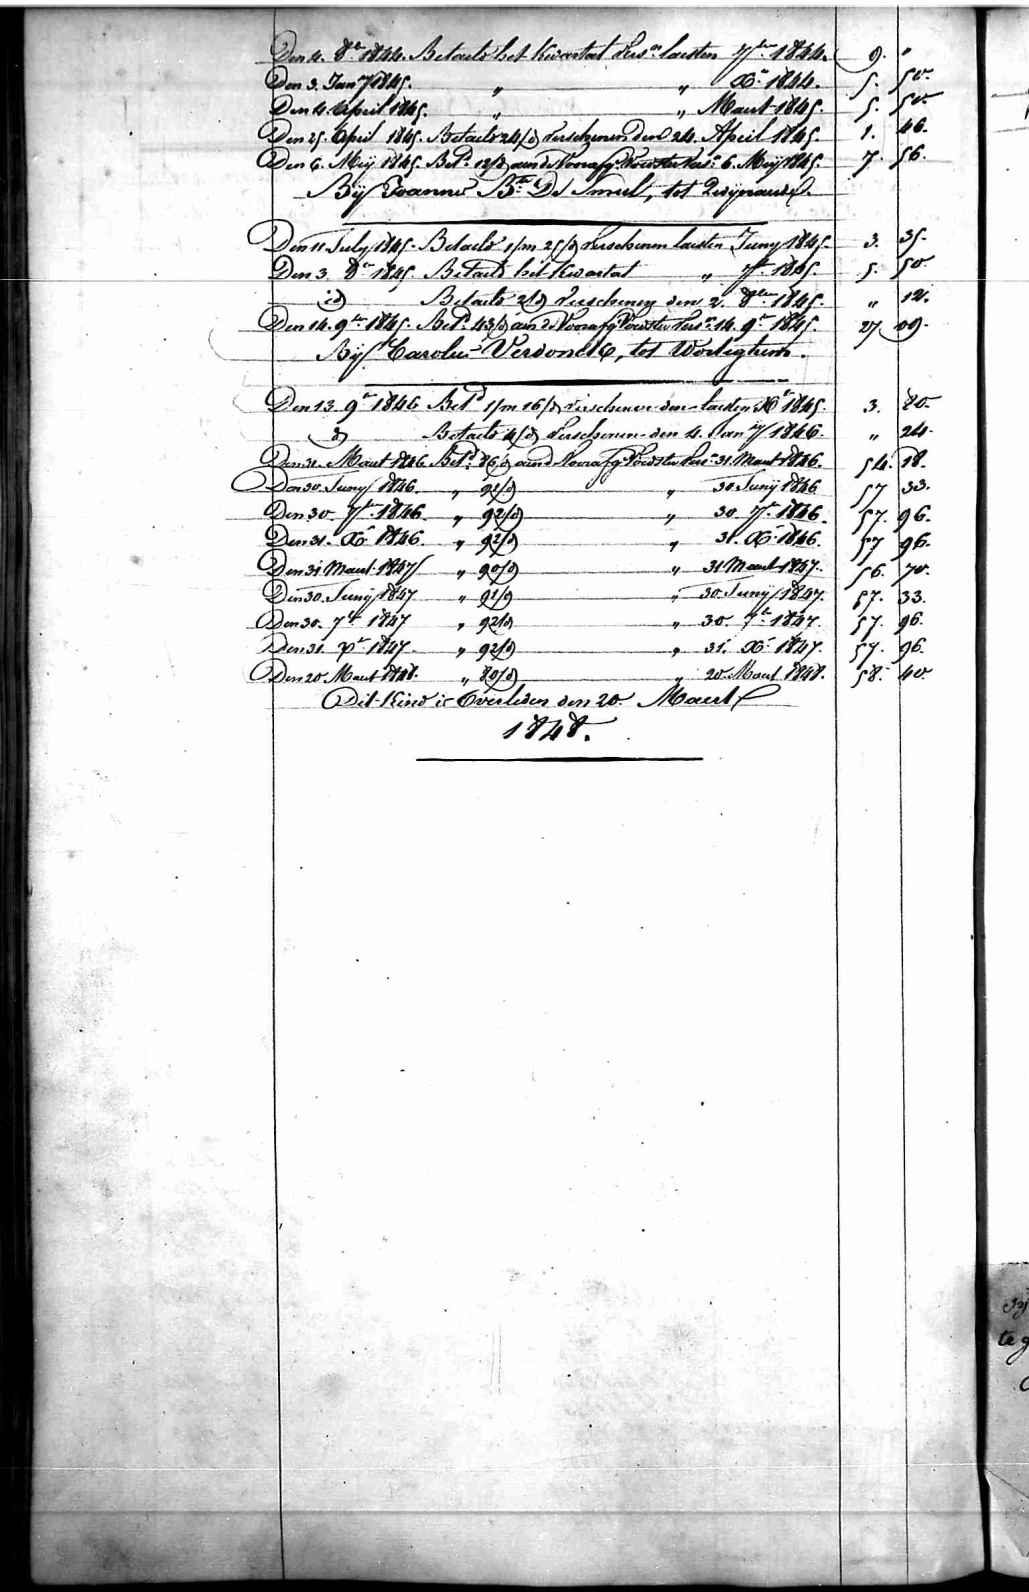 Den 4. 8er 1844. Betaeld het kwartael Vers.n laesten 7ber 1844. 9. "
Den 3. Jan.y 1845. " " Xr 1844. 5. 50.
Den 4. April 1845. " " Maert 1845. 5. 50.
Den 25. April 1845. Betaeld 24/d verschenen den 24. April 1845. 1. 46.
Den 6. Meij 1845. Bet.d 12/d aen de Vooraf.g Voedster Vers.n 6. Meij 1845. 7. 56.
Bij Joannes B.te De Smet, tot
Den 11 July 1845. Betaeld 1/m 25/d verschenen laesten Juny 1845. 3. 35.
Den 3. 8er 1845. Betaeld het kwartael " 7r 1845. 5. 50.
id Betaeld 2/d verschenen den 2. 8ber 1845. " 12.
Den 14. 9ber 1845. Bet.d 43/d aen de Vooraf.g Voedster Vers.n 14. 9r 1845. 27. 09.
Bij Carolus Verdonck, tot Worteghem.
Den 13. 9r 1846 Bet.d 1/m 16/d verschenen den laesten Xr 1845. 3. 20.
d Betaeld 4/d verschenen den 4. Jan.y 1846. " 24.
Den 31. Maert 1846. Bet.d 86/d aen d Vooraf.g Voedster Vers.n 31 Maert 1846. 54. 18.
Den 30. Juny 1846. " 91/d " 30 Junij 1846 57 33.
Den 30. 7r 1846. " 92/d " 30. 7r 1846. 57. 96.
Den 31. Xr 1846. " 92/d " 31. Xr 1846. 57 96.
Den 31 Maert 1847 " 90/d " 31 Maert 1847. 56. 70.
Den 30. Junij 1847 " 91/d " 30. Junij 1847. 57. 33.
Den 30. 7r 1847 " 92/d " 30. 7r 1847. 57. 96.
Den 31. Xr 1847. " 92/d " 31. Xr 1847. 57. 96.
Den 20 Maert 1848. " 80/d " 20. Maert 1848. 58. 40.
Dit Kind is Overleden den 20. Maert
1848.